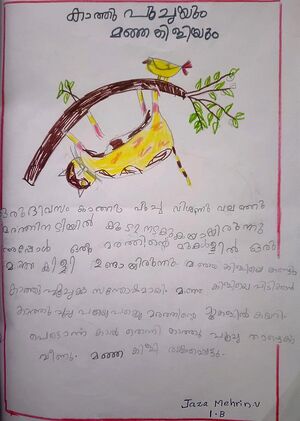 കാത്തു പൂച്ചയും
മഞ്ഞക്കിളിയും
ഒരു ദിവസം കാത്തു പൂച്ച വിശന്നു വലഞ്ഞു
മരത്തിനടിയിൽ കൂടി നടക്കുകയായിരുന്നു
അപ്പോൾ ഒരു മരത്തിന്റെ മുകളിൽ ഒരു
മഞ്ഞ കിളി ഉണ്ടായിരുന്നു. മഞ്ഞ കിളിയെ കണ്ടതും
കാത്തു പൂച്ചക്ക് സന്തോഷമായി. മഞ്ഞ കിളിയെ പിടിക്കാൻ
കാത്തു പൂച്ച പയ്യെ പയ്യെ മരത്തിന്റെ മുകളിൽ കയറി.
പെട്ടൊന്ന് കാൽ തെന്നി കാത്തു പൂച്ച താഴെക്ക്
വീണു. മഞ്ഞ കിളി രക്ഷപ്പെട്ടു.
Jaza Mehrin.V
1.B